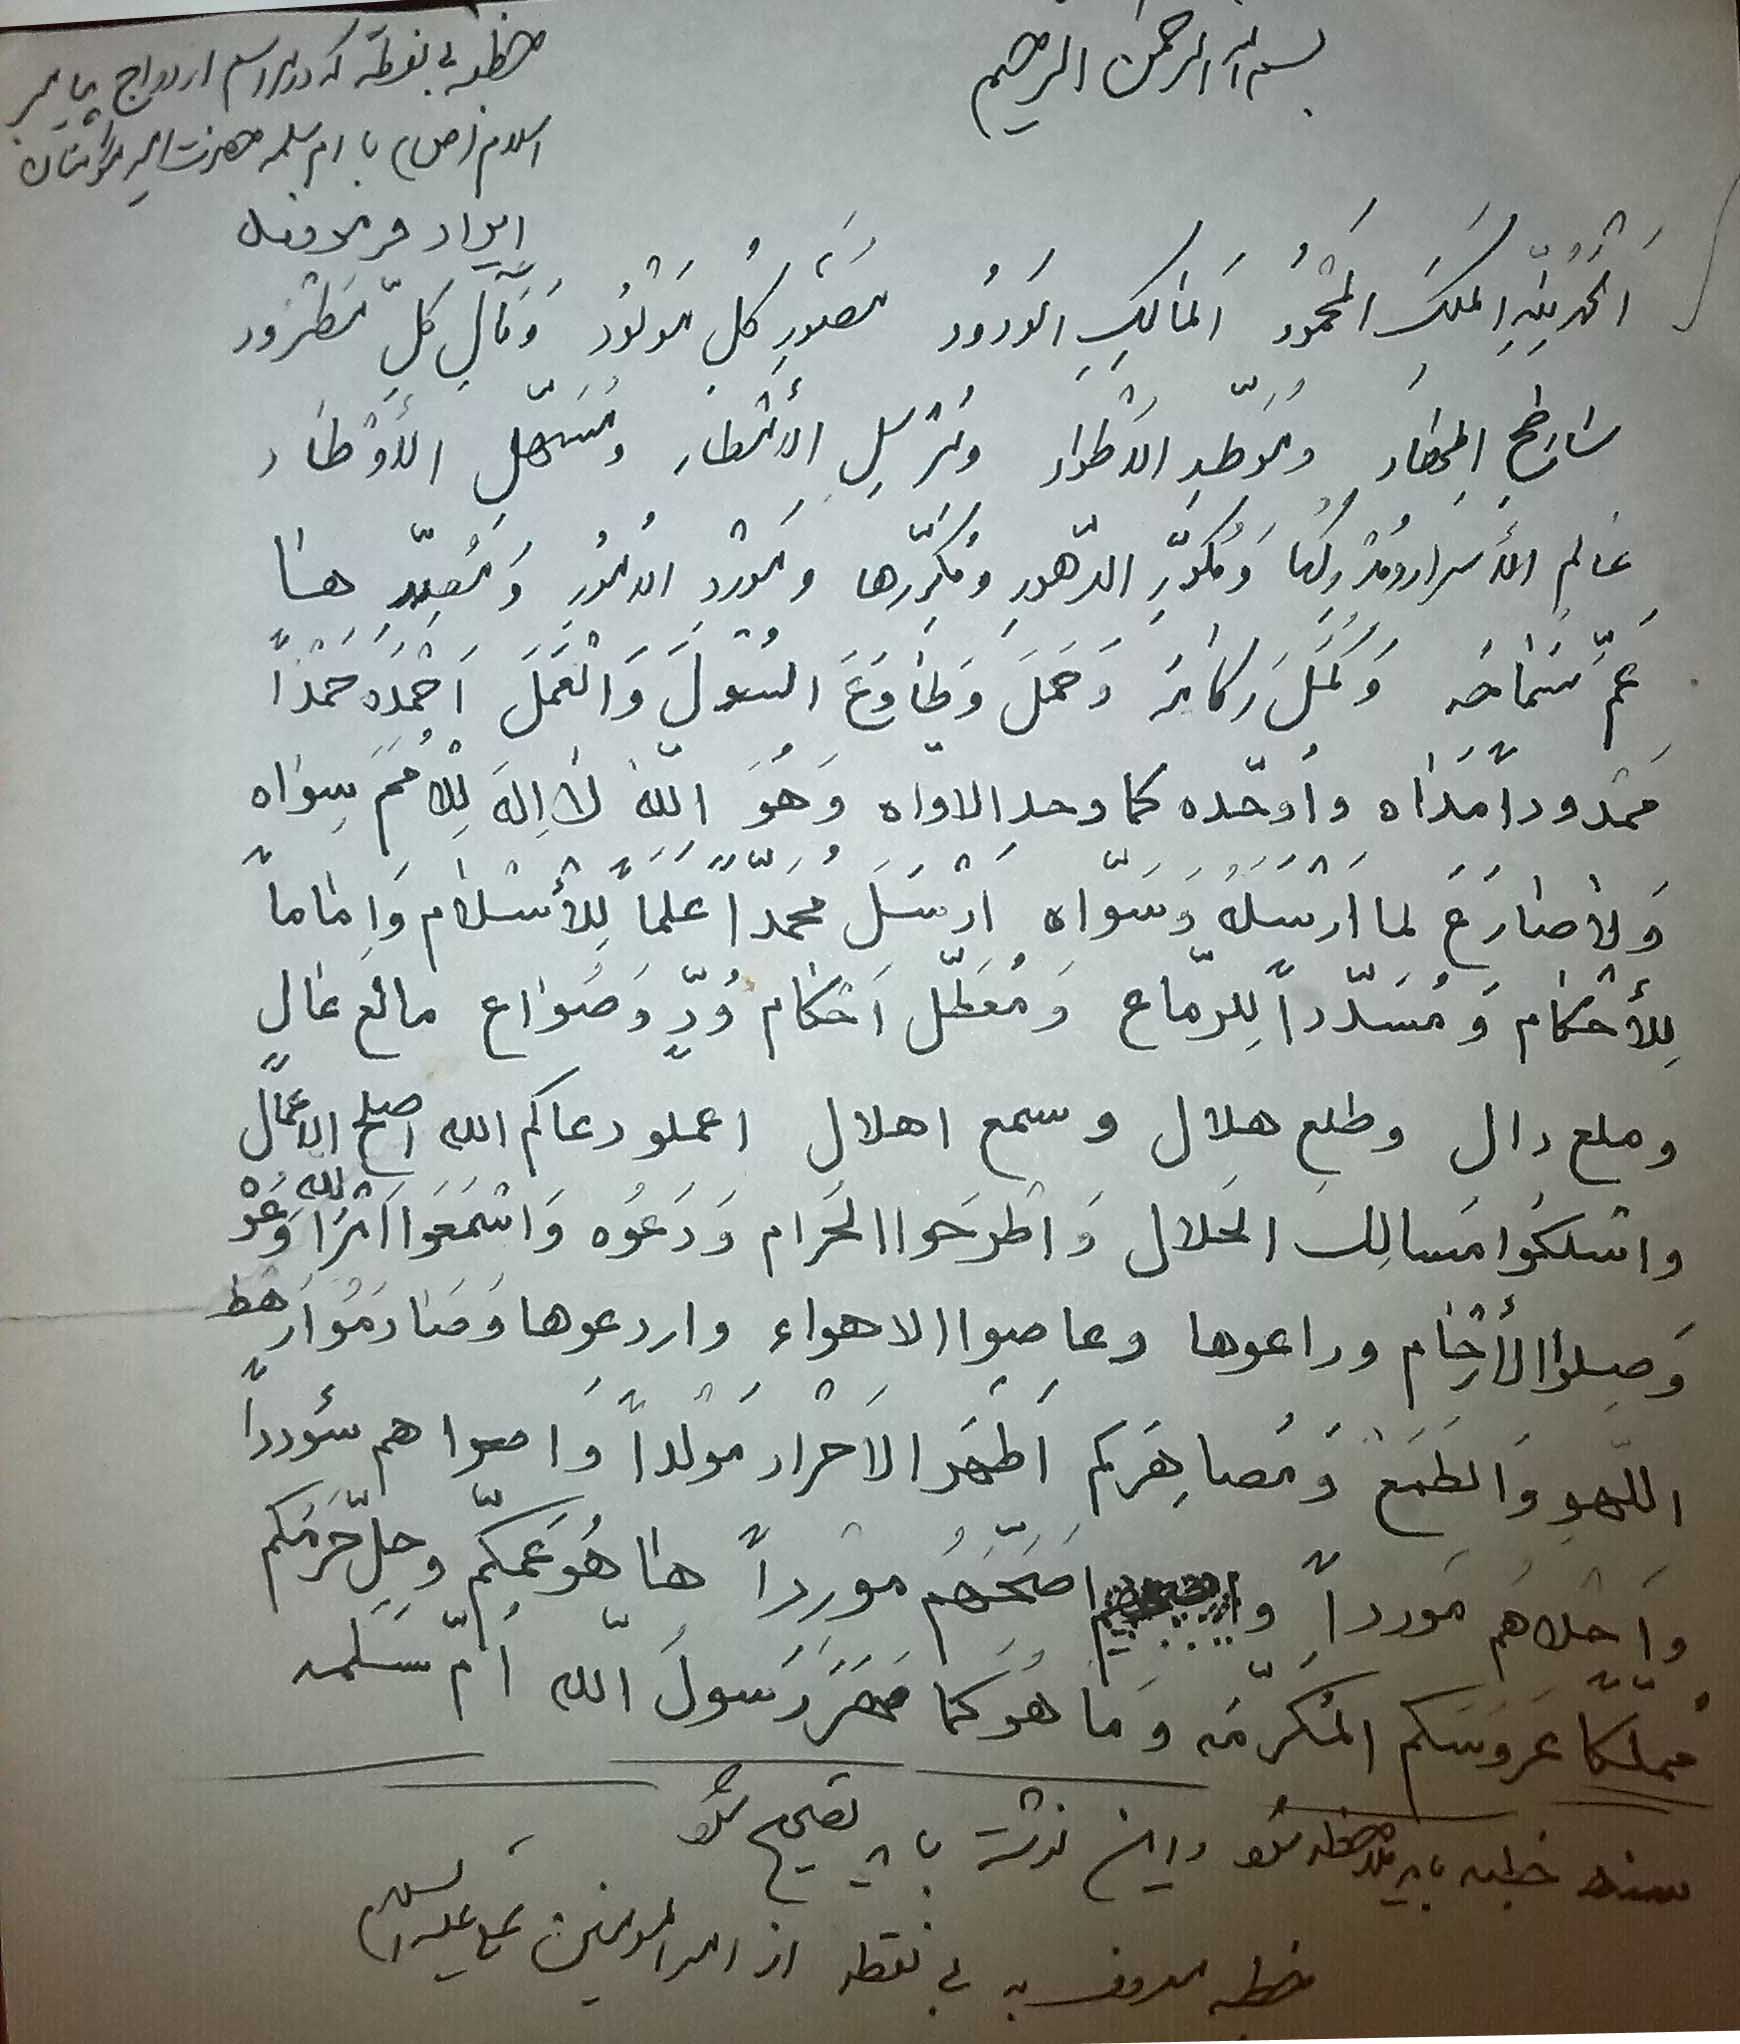 بسم الله الرحمن الرحیم
خطبه بی نقطه که در مراسم ازدواج پیامبر
اسلام (ص) با ام سلمه حضرت امیرمؤمنان
ایراد فرمودند
اَلْحَمْدُ لِلّهِ المَلِکِ المَحْمُودُ اَلمالِکِ الوَدُودُ مُصَوِّرِ کُلِّ مَوْلُودُ وَ مَآلِ کُلِّ مَطْرُود
ساطِحِ المِهادِ و مُوَطِّدِ الاَطْوادِ و مُرْسِلِ الأمْطارِ و مُسَهِّلِ الأَوْطار
عالِمِ الأَسرار و مُدْرِکُها وَ مُکَوِّرِ الدّهورِ و مُکَرِّرها و مُورِدِ الاُمُورِ وَ مُصَدِّرِ ها
عَمَّ سَماحُه وَ کَمَلَ رُکامُه وَ هَمَلَ وَ طاوَعَ السُّولَ وَ الْعَمَلَ اَحْمَدُه حَمْداً
مَمْدوداً مَداه و اُوَحِّده کما وحد الاواه وَ هُوَ اللّه لا اِلهَ لِلاُمَمِ سِواه
وَ لا صارَعَ لما اَرْسَلَهُ وَ سَوّاه اَرْسَلَ مُحَمّداً عَلَماً لِلأسْلام وَ اِماماً
لِلأَحْکام وَ مُسَدِّداً لِلرّماح وَ مُعَطِّل اَحْکام وُدٍّ وَ سُواع مالع عال
و ملع دال و طلع هلال و سمع اهلال اعملو رعاکم الله اصلح الاعمال
و اسْلکُوا مَسالِکَ الحَلال وَ اطْرَحَوا الحَرام وَ دَعُوه وَ اسْمَعَوا اَمْرَ الله وَ عُوْه
وَ صِلوا الأرْحام و راعوها و عاصوا الاهواء و اردعوها وَ صادمُوا رَهط
اللّهو وَ الطَمَع وَ مُصاهِرَکم اَطْهَر الاَحْرار مَوْلداً وَ اسواهم سُؤدداً
و اَحْلاهُم مَورداً و اصَحَّهُم موْرِداً ها هُوَ عَمِکُّم و حِلّ حَرَمکم
مُملِّکاً عَروسَکم المُکرّمَه و ما هُوَ کَما مَهَرَ رَسولَ اللّه اُمّ سَلَمه
سند خطبه باید ملاحظه شود و این نوشته باید تصحیح شود
خطبه معروف به بی نقطه از امیرالمومنین علی علیه السلام